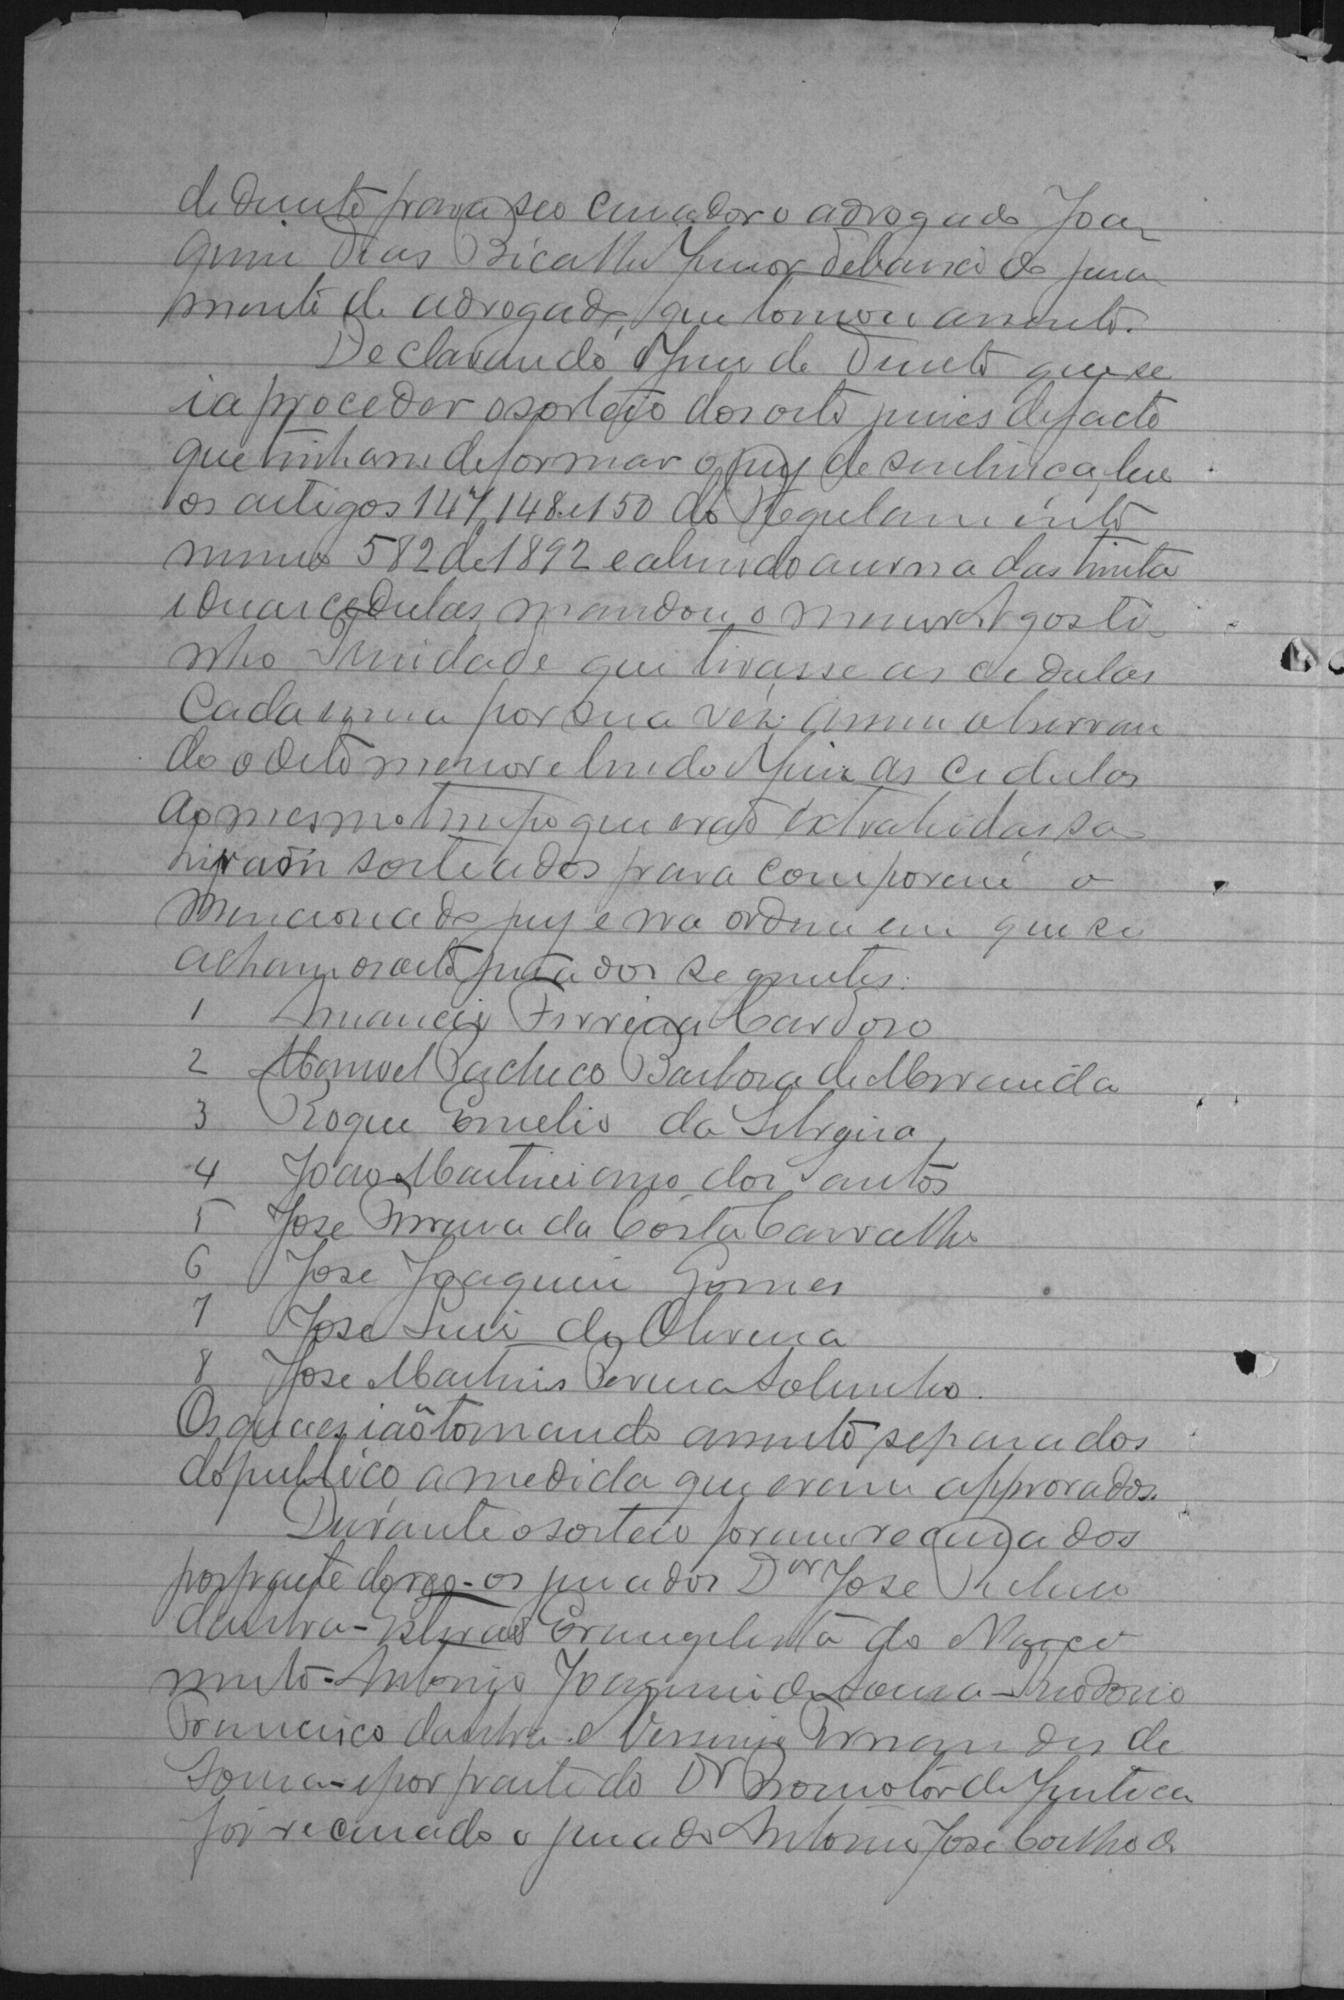 de Direito para seo curador o advogado Joa-
quim Dias Bicalho Junior debaixo do jura
mento de advogado, que tomou assento.
Declarando o Juiz de Direito que se
ia proceder o sorteio dos oito juizes de facto
que tinham de formar o jury de sentença, leu
os artigos 147, 148 e 150 do Regulamento
numero 582 de 1892 e abrindo a urna das trinta
e duas cedulas, mandou o menor Agosti-
nho Trindade que tirasse as cedulas
cada uma por sua vez: assim observan
do o dito menor e lendo o Juiz as cedulas
ao mesmo tempo que erão extrahidas sa
hirão sorteados para comporem o
mencionado jury e na ordem em que se
acham os oito jurados seguintes:
1 Amancio Ferreira Cardoso
2 Manoel Pacheco Barbosa de Miranda
3 Roque Emelio da Silveira
4 João Martiniano dos Santos
5 Jose Ferreira da Costa Carvalho
6 Jose Joaquim Gomes
7 Jose Luiz de Oliveira
8 Jose Martins Pereira Sobrinho.
Os quaes ião tomando assento separados
do publico a medida que eram approvados.
Durante o sorteio foram recusados
por parte do reo - os jurados Dor Jose Pacheco
da Silva - Evangelista do Nasci
mento - Antonio Joaquim de Sousa - Theodorio
Francisco da Silva e Verissimo Fernandes de
Sousa - e por parte do Dr Promotor de Justica
foi recusado o jurado Antonio José Coelho d